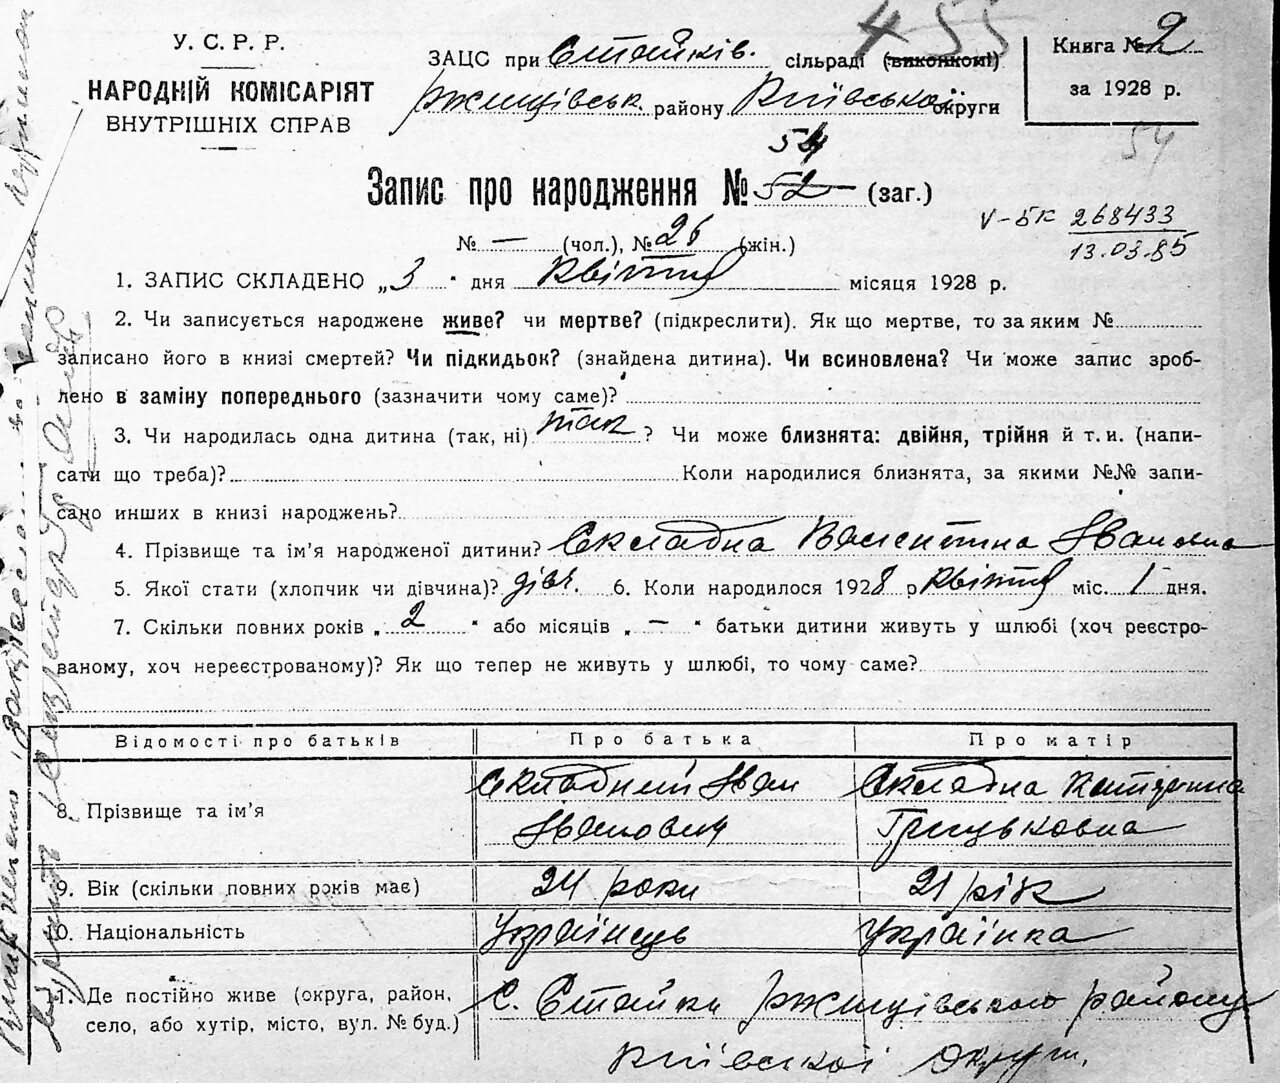 455
У. С. Р. Р.
НАРОДНІЙ КОМІСАРІЯТ
ВНУТРІШНІХ СПРАВ
ЗАЦС при Стайків. сільраді (виконкомі)
Ржищівськ. району Київської округи
Книга № 2
за 1928 р.
54
54
Запис про народження № 52 (заг.)
№ — (чол.), № 26 (жін.)
V-БК 268433
13.03.85
1. ЗАПИС СКЛАДЕНО „ 3 " дня квітня місяця 1928 р.
2. Чи записується народжене живе? чи мертве? (підкреслити). Як що мертве, то за яким №
записано його в книзі смертей? Чи підкидьок? (знайдена дитина). Чи всиновлена? Чи може запис зроб-
лено в заміну попереднього (зазначити чому саме)?
3. Чи народилась одна дитина (так, ні) так ? Чи може близнята: двійня, трійня й т. и. (напи-
сати що треба)? Коли народилися близнята, за якими №№ запи-
сано инших в книзі народжень?
4. Прізвище та ім'я народженої дитини? Складна Валентина Івановна
5. Якої стати (хлопчик чи дівчина)? дівч. 6. Коли народилося 1928 р квітня міс. 1 дня.
7. Скільки повних років „ 2 " або місяців „ — " батьки дитини живуть у шлюбі (хоч реєстро-
ваному, хоч нереєстрованому)? Як що тепер не живуть у шлюбі, то чому саме?
Відомості про батьків Про батька Про матір
8. Прізвище та ім'я Складний Іван Іванович Складна Катерина Грицьковна
9. Вік (скільки повних років має) 24 роки 21 рік
0. Національність Українець Українка
1. Де постійно живе (округа, район,
село, або хутір, місто, вул. № буд.) С. Стайки Ржищівського району
Київської округи.